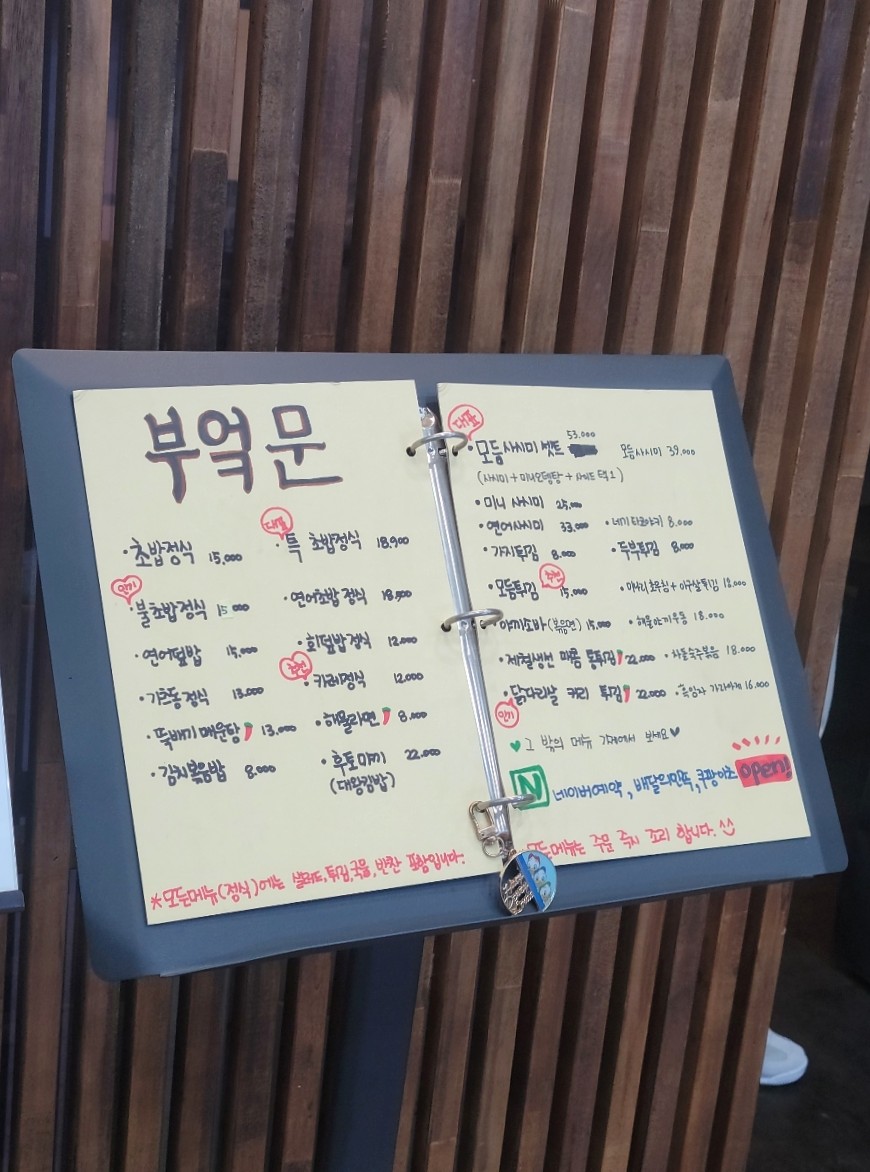 부엌문
초밥정식 15,000
대표
특 초밥정식 18,900
인기
불초밥정식 15,000
연어초밥정식 18,500
연어덮밥 15,000
회덮밥정식 12,000
추천
카레정식 12,000
가츠동정식 13,000
뚝배기 매운탕 13,000
해물라면 8,000
김치볶음밥 8,000
후토마끼 22,000
(대왕김밥)
*모든메뉴(정식)에는 샐러드,튀김,국물, 반찬 포함입니다.
대표
모듬사시미 셋트 53,000
모듬사시미 39,000
미니 사시미 25,000
연어사시미 33,000
네기타코야키 8,000
가지튀김 8,000
두부튀김 8,000
추천
모듬튀김 15,000
+ 아구살튀김 18,000
야끼소바(볶음면) 15,000
해물야끼우동 18,000
제철생선 매콤 통튀김 22,000
차돌숙주볶음 18,000
닭다리살 커리 튀김 22,000
가라아게 16,000
인기
그 밖의 메뉴 가게에서 보세요
N 네이버예약, 배달의민족, 쿠팡이츠 open!
모든메뉴는 주문 즉시 조리 합니다. ^^